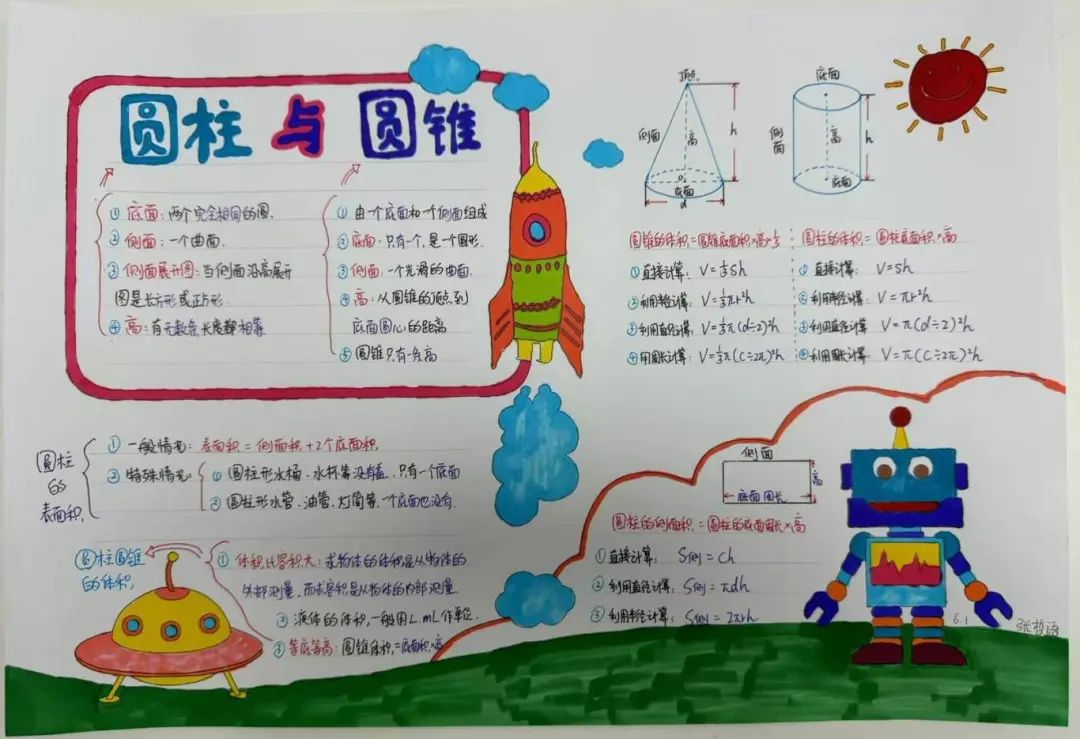 圆柱与圆锥
①底面：两个完全相同的圆.
②侧面：一个曲面.
③侧面展开图：当侧面沿高展开
图是长方形或正方形.
④高：有无数条长度都相等
①由一个底面和一个侧面组成
②底面：只有一个,是一个圆形.
③侧面：一个光滑的曲面.
④高：从圆锥的顶点到
底面圆心的距离
⑤圆锥只有一条高
顶点
侧面
高
h
o
底面
d
底面
侧面
高
h
底面
圆锥的体积=圆锥底面积×高×⅓
①直接计算：V=⅓Sh
②利用半径计算：V=⅓πr²h
③利用直径计算：V=⅓π(d÷2)²h
④用周长计算：V=⅓π(C÷2π)²h
圆柱的体积=圆柱底面积×高
①直接计算：V=Sh
②利用半径计算：V=πr²h
③利用直径计算：V=π(d÷2)²h
④利用周长计算：V=π(C÷2π)²h
圆柱
的
表面积.
①一般情况：表面积=侧面积+2个底面积
②特殊情况
①圆柱形水桶.水杯等没有盖,只有一个底面
②圆柱形水管.油管.大筒等,一个底面也没有.
圆柱圆锥
的体积.
①体积比容积大：求物体的体积是从物体的
外部测量,而求容积是从物体的内部测量.
②液体的体积,一般用L.mL作单位.
③等底等高：圆锥体积=底面积×高
侧面
高
底面周长
圆柱的侧面积=圆柱的底面周长×高
①直接计算：S侧=ch
②利用直径计算：S侧=πdh
③利用半径计算：S侧=2πrh
6.1